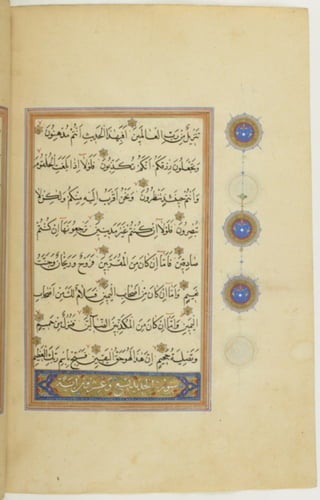 تنزيل من رب العالمين أفبهذا الحديث أنتم مدهنون
وتجعلون رزقكم أنكم تكذبون فلولا إذا بلغت الحلقوم
وأنتم حينئذ تنظرون ونحن أقرب إليه منكم ولكن لا
تبصرون فلولا إن كنتم غير مدينين ترجعونها إن كنتم
صادقين فأما إن كان من المقربين فروح وريحان وجنت
نعيم وأما إن كان من أصحاب اليمين فسلام لك من أصحاب
اليمين وأما إن كان من المكذبين الضالين فنزل من حميم
وتصلية جحيم إن هذا لهو حق اليقين فسبح باسم ربك العظيم
سورة الحديد تسع وعشرون آية